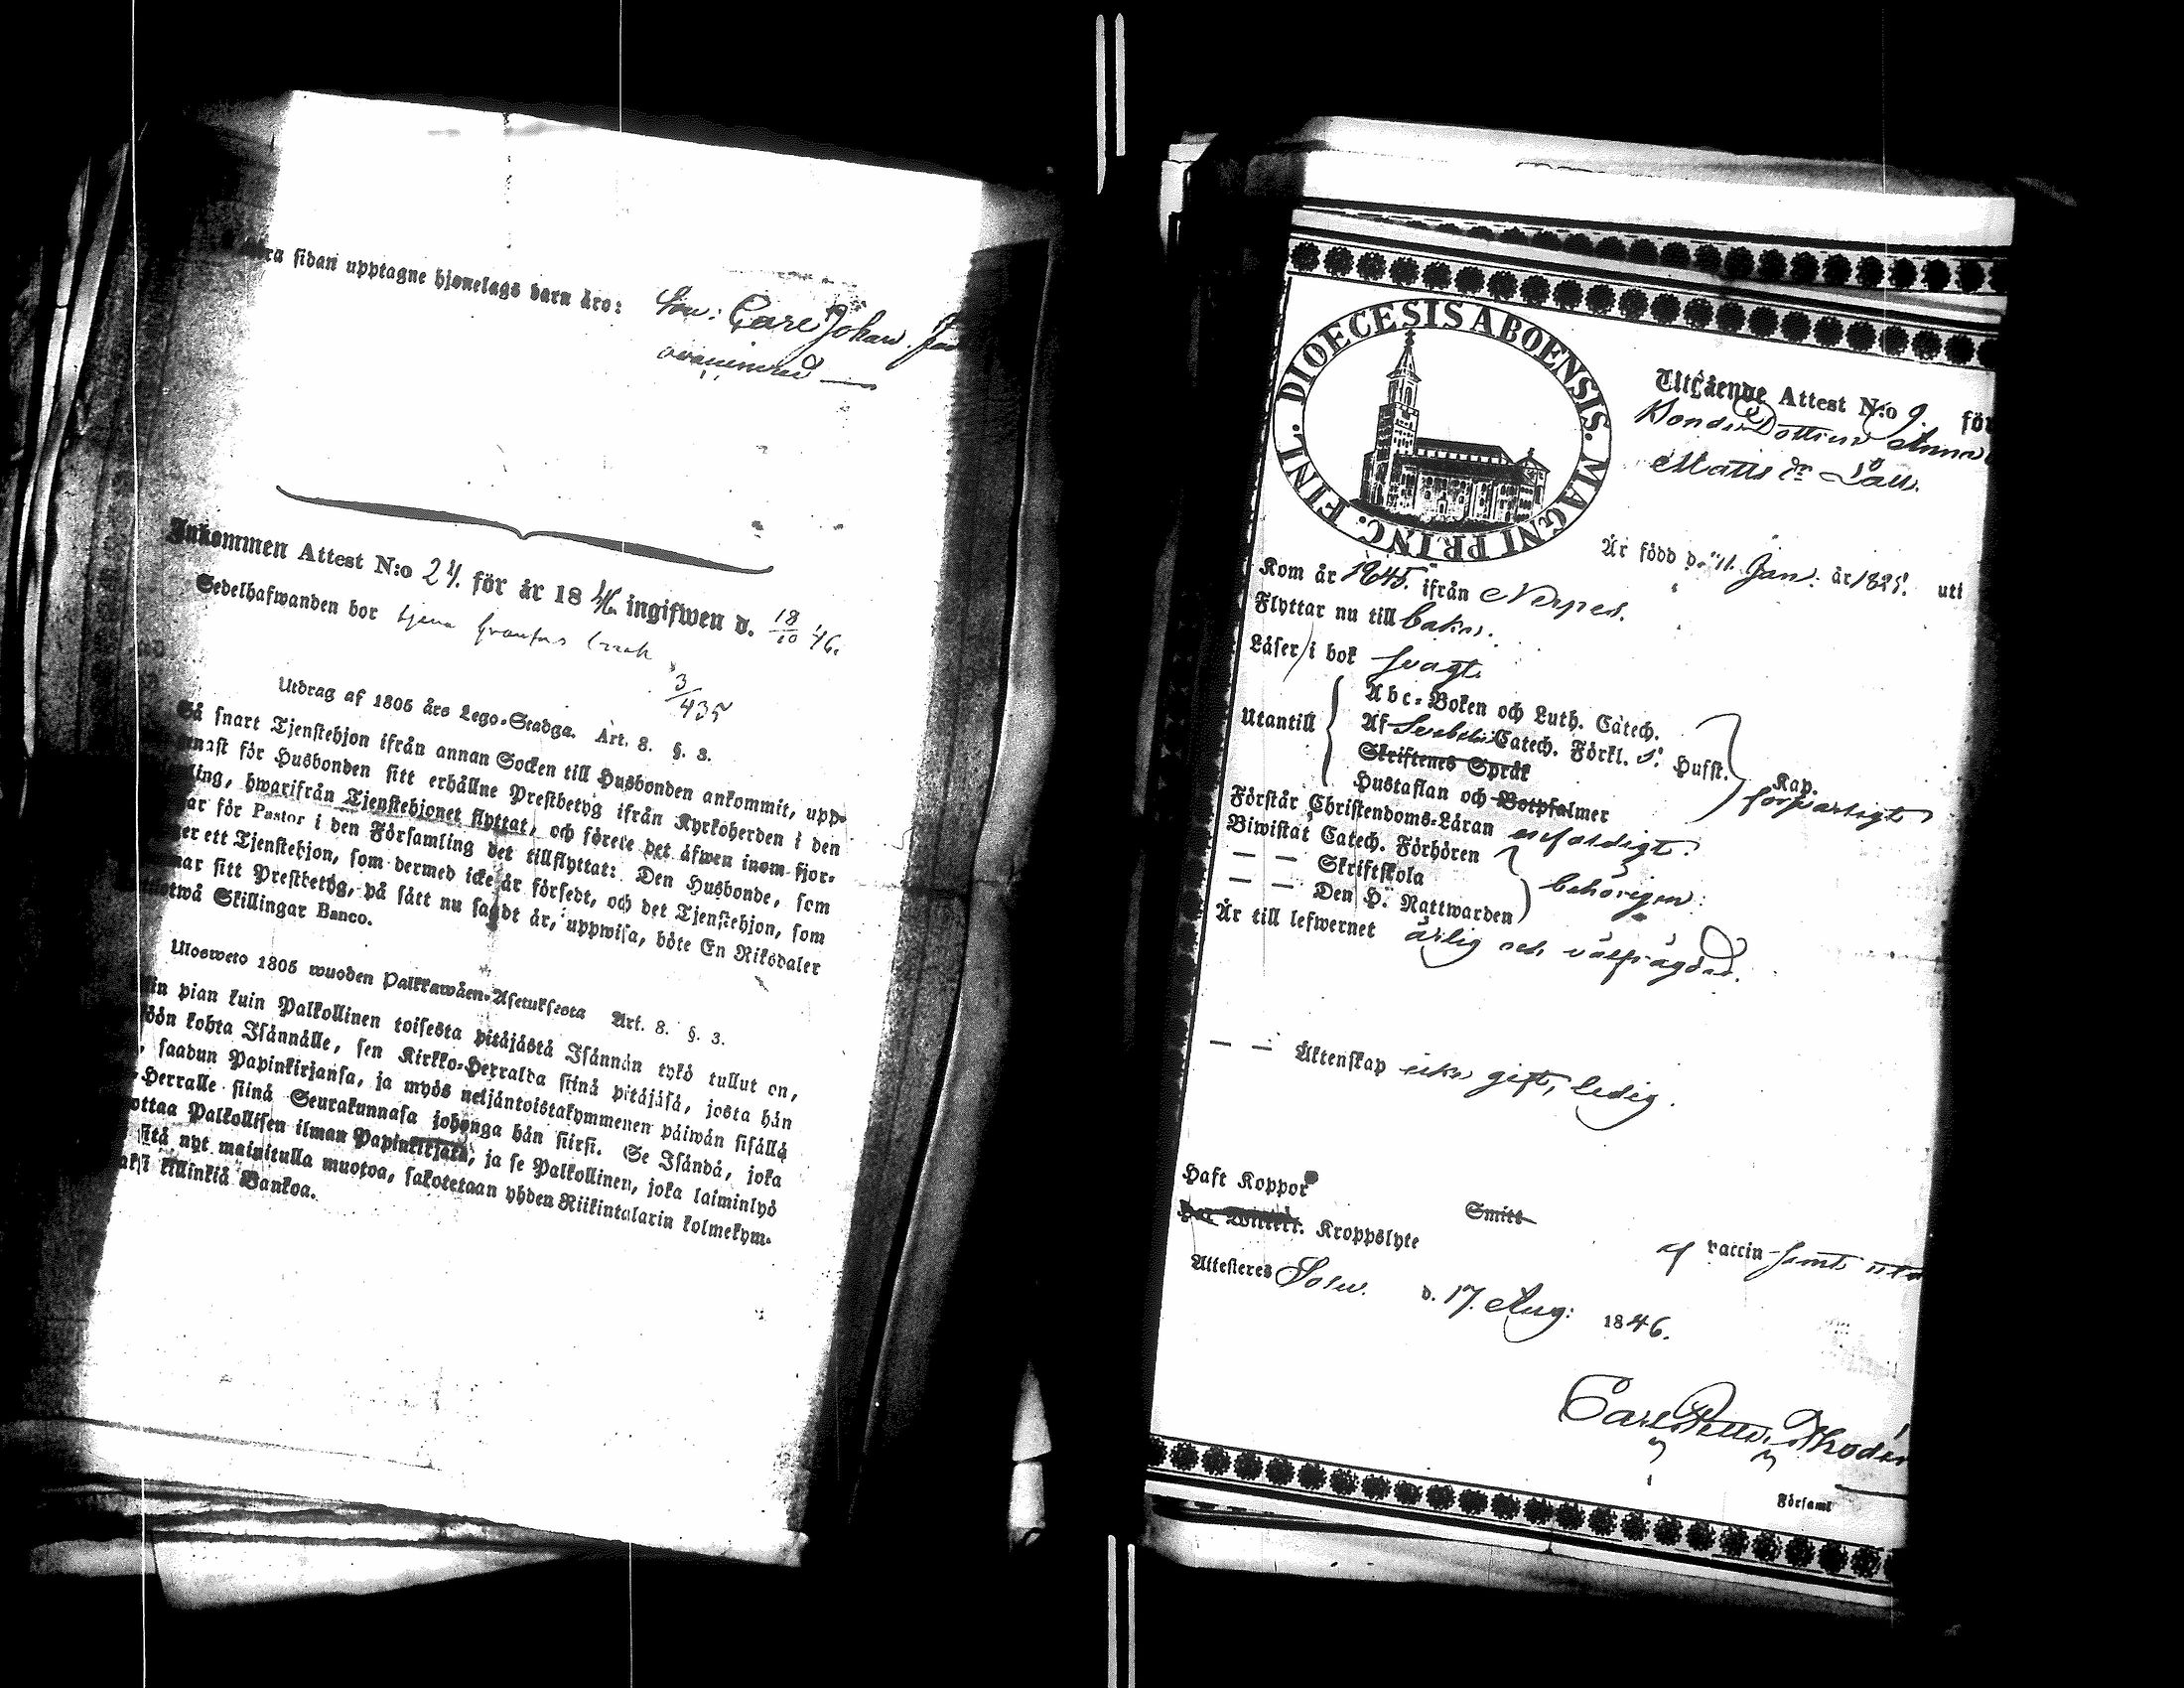 ra sidan upptagne hjonelags barn äro: Son: Carl Johan
Inkommen Attest N:o 24. för år 1846 ingifwen d. 18/10 46.
Sedelhafwanden bor tjena
3/435
Utdrag af 1805 års Lego-Stadga. Art. 8. §. 3.
Så snart Tjenstehjon ifrån annan Socken till Husbonden ankommit, upp-
för Husbonden sitt erhållne Prestbetyg ifrån Kyrkoherden i den
ling, hwarifrån Tjenstehjonet flyttat, och förete det äfwen inom fjor-
ar för Pastor i den Församling det tillflyttat: Den Husbonde, som
er ett Tjenstehjon, som dermed icke är försedt, och det Tjenstehjon, som
mar sitt Prestbetyg, på sätt nu sagdt är, uppwisa, böte En Riksdaler
twå Skillingar Banco.
Ulosweto 1805 wuoden Palkkawäen-Asetuksesta Art. 8. §. 3.
in pian kuin Palkollinen toisesta pitäjästä Isännän tykö tullut on,
kohta Isännälle, sen Kirkko-Herralda siinä pitäjäsä, josta hän
, saadun Papinkirjansa, ja myös neljäntoistakymmenen päiwän sisällä
-Herralle siinä Seurakunnasa johonga hän siirsi. Se Isändä, joka
ottaa Palkollisen ilman Papinkirjata, ja se Palkollinen, joka laiminlyö
sitä nyt mainitulla muotoa, sakotetaan yhden Riikintalarin kolmekym-
aksi killinkiä Bankoa.
DIOECESIS ABOENSIS. MAGNI PRINC. FINL.
Utgående Attest N:o 9. för
Bonde Dottern Anna
Matts dr
Är född d. 11. Jan: år 1825. uti
Kom år 1845. ifrån Nerpes.
Flyttar nu till baka.
Läser i bok svagt.
Utantill
Abc-Boken och Luth. Catech.
Af Svebelii Catech. Förkl. 5. Hufst.
Skriftenes Språk Kap.
Hustaflan och Botpsalmer försvarligt
Förstår Christendoms-Läran enfaldigt.
Biwistat Catech. Förhören
— — Skriftskola behörigen:
— — Den H. Nattwarden
Är till lefwernet ärlig och välfrägdad.
— — Äktenskap icke gift, ledig.
Haft Koppor Smitt
af vaccin samt utan
Har Kroppslyte
Attesteres Solw. d. 17. Aug: 1846.
Carl Petter
Församl